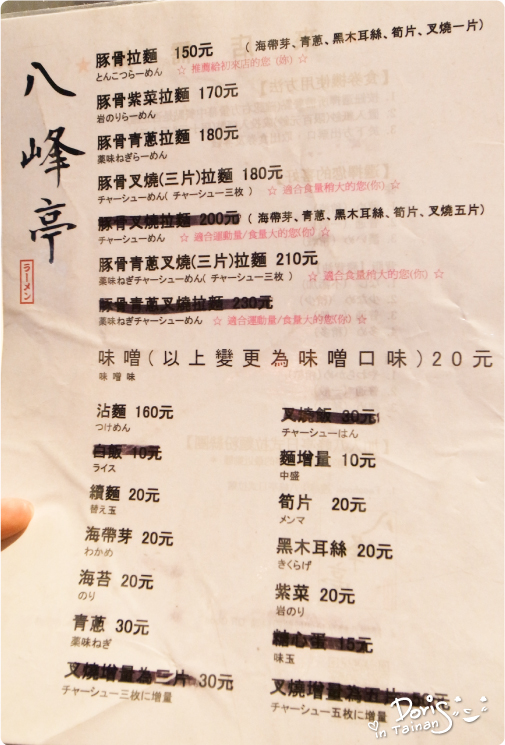 八峰亭
ラーメン
豚骨拉麵 150元 （海帶芽、青蔥、黑木耳絲、筍片、叉燒一片）
とんこつらーめん ☆ 推薦給初來店的您（妳）☆
豚骨紫菜拉麵 170元
岩のりらーめん
豚骨青蔥拉麵 180元
薬味ねぎらーめん
豚骨叉燒(三片)拉麵 180元
チャーシューめん( チャーシュー三枚 ) ☆ 適合食量稍大的您(你) ☆
豚骨叉燒拉麵 200元 （海帶芽、青蔥、黑木耳絲、筍片、叉燒五片）
チャーシューめん ☆ 適合運動量/食量大的您(你) ☆
豚骨青蔥叉燒(三片)拉麵 210元
薬味ねぎチャーシューめん( チャーシュー三枚 ) ☆ 適合食量稍大的您(你) ☆
豚骨青蔥叉燒拉麵 230元
薬味ねぎチャーシューめん ☆ 適合運動量/食量大的您(你) ☆
味噌(以上變更為味噌口味)20元
味噌味
沾麵 160元
つけめん
白飯 10元
ライス
續麵 20元
替え玉
海帶芽 20元
わかめ
海苔 20元
のり
青蔥 30元
薬味ねぎ
叉燒增量為三片 30元
チャーシュー三枚に增量
叉燒飯 30元
チャーシューはん
麵增量 10元
中盛
筍片 20元
メンマ
黑木耳絲 20元
きくらげ
紫菜 20元
岩のり
糖心蛋 15元
味玉
叉燒增量為五片 50元
チャーシュー五枚に增量
Doris
in Tainan